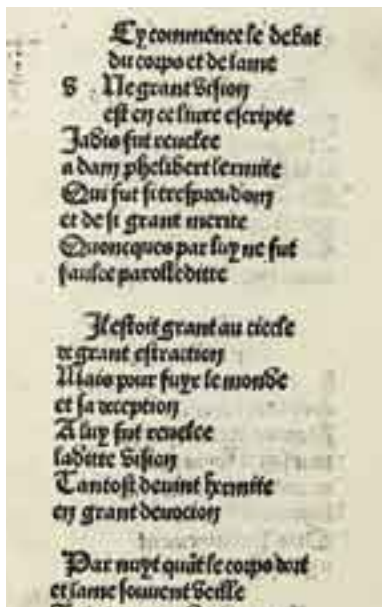 Cy commēce le debat
du corps et de lame
v Ne grant vision
est en ce liure escripte
Jadis fut reuelee
a dam phelibert lermite
Qui fut si trespreudom
et de si grant merite
Quoncques par luy ne fut
faulce parolle ditte
Il estoit grant au ciecle
de grant estraction
Mais pour fuyr le monde
et sa deception
A luy fut reuelee
laditte vision
Tantost deuint hermite
en grant deuocion
Par nuyt quāt le corps dort
et lame souuent veille